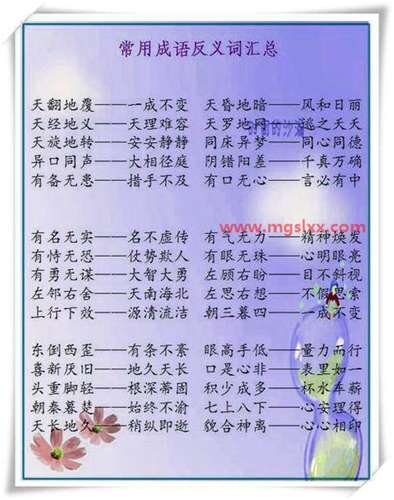 常用成语反义词汇总
天翻地覆——一成不变 天昏地暗——风和日丽
天经地义——天理难容 天罗地网——逃之夭夭
天旋地转——安安静静 同床异梦——同心同德
异口同声——大相径庭 阴错阳差——千真万确
有备无患——措手不及 有口无心——言必有中
www.mgslxx.com
有名无实——名不虚传 有气无力——精神焕发
有恃无恐——仗势欺人 有眼无珠——心明眼亮
有勇无谋——大智大勇 左顾右盼——目不斜视
左邻右舍——天南海北 左思右想——不假思索
上行下效——源清流洁 朝三暮四——一成不变
东倒西歪——有条不紊 眼高手低——量力而行
喜新厌旧——地久天长 口是心非——表里如一
头重脚轻——根深蒂固 积少成多——杯水车薪
朝秦暮楚——始终不渝 七上八下——心安理得
天长地久——稍纵即逝 貌合神离——心心相印